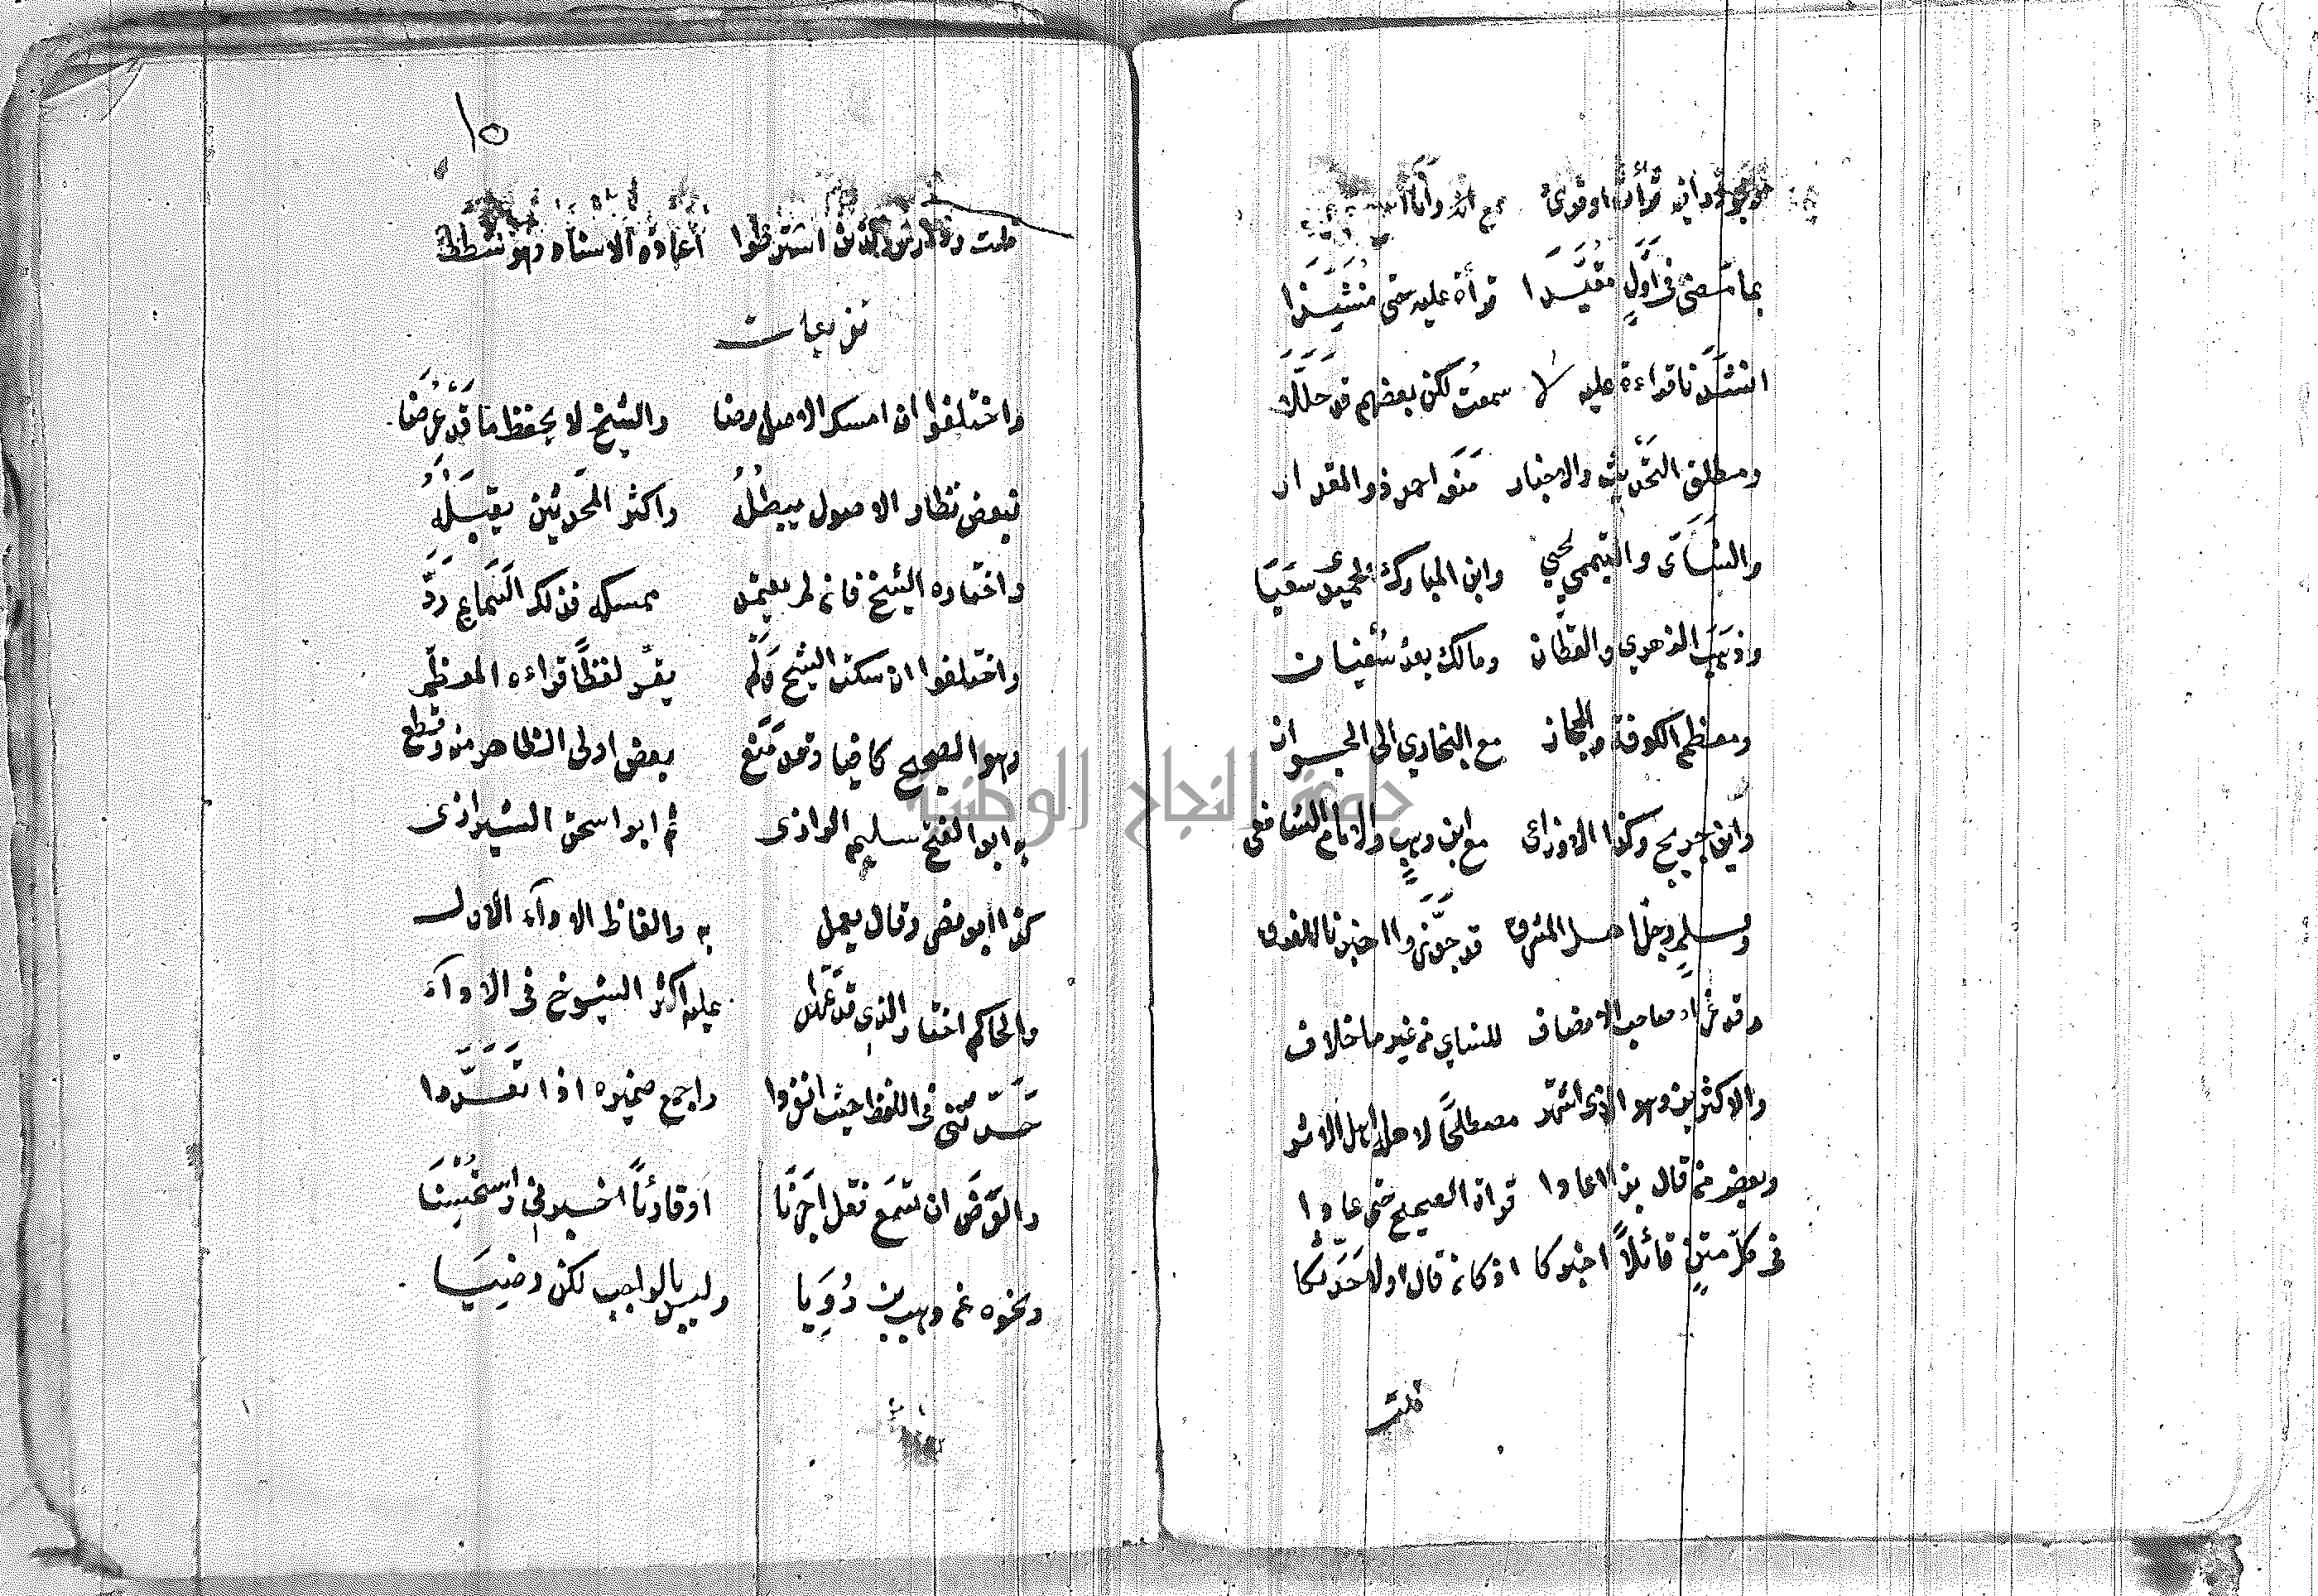 وجودوا فيه قرأت او قرئ مع انا
بما مضى في اول مقيدا قرأة عليه حتى منشدا
انشدنا قراءة عليه لا سمعت لكن بعضهم قد حللا
ومطلق التحديث والاخبار منع احمد ذو المقدار
والنسائ والتميمي يحيي وابن المبارك الحميد سعيا
وذهب الزهري والقطان ومالك بعد سفيان
ومعظم الكوفة والحجاز مع البخاري الى الجواز
وابن جريج وكذا الاوزاعى مع ابن وهب والامام الشافعى
ومسلم وجل اهل المشرق قد جوزوا اخبرنا للفرق
وقد عزاه صاحب الانصاف للنساي من غير ما خلاف
والاكثرين وهو الذى اشتهر مصطلحا لاهله اهل الاثر
وبعض من قال بذا اعادا قراة الصحيح حتى عادا
في كل متن قائلا اخبركا اذ كان قال اولا حدثكا
قلت
١٥
قلت وذا راى الذين اشترطوا اعادة الاسناد وهو شطط
تفريعات
واختلفوا ان امسك الاصل رضا والشيخ لا يحفظ ما قد عرضا
فبعض نظار الاصول يبطله واكثر المحدثين يقبله
واختاره الشيخ فان لم يعتمد ممسكه فذلك السماع رد
واختلفوا ان سكت الشيخ ولم يقر لفظا قراءه المعظم
وهو الصحيح كافيا وقد منع بعض اولى الظاهر منه وقطع
به ابو الفتح سليم الرازى ثم ابو اسحق الشيرازى
كذا ابو نصر وقال يعمل به والفاظ الاداء الاول
والحاكم اختار الذي قد عهدا عليه اكثر الشيوخ في الاداء
حدثني في اللفظ حيث انفردا واجمع ضميره اذا تعددا
والعرض ان تسمع فقل اخبرنا او قارئا اخبرني واستحسنا
ونحوه عن وهب بن رويا وليس بالواجب لكن رضيا
جامعة النجاح الوطنية